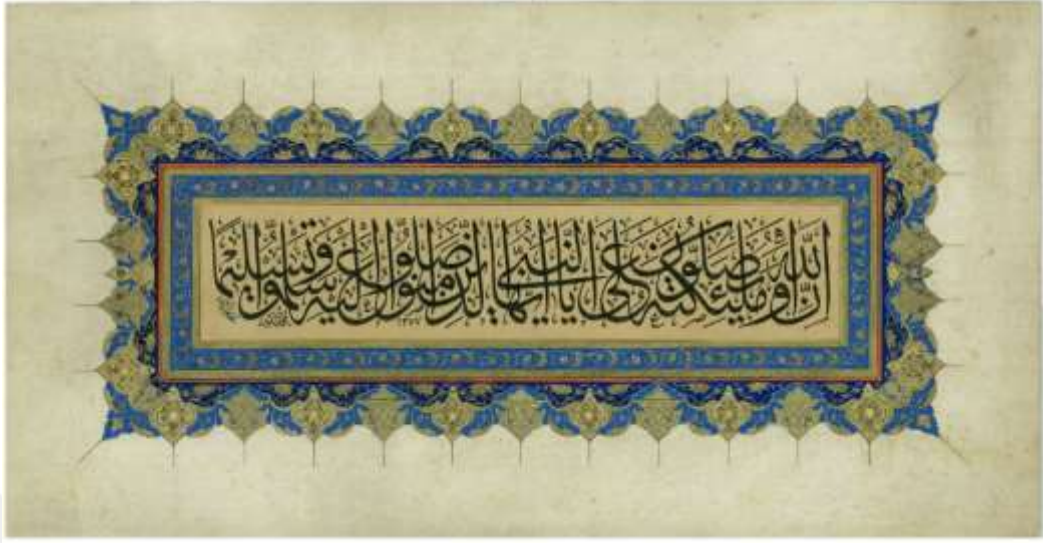 إن الله وملئكته يصلون على النبي يا أيها الذين آمنوا صلوا عليه وسلموا تسليما